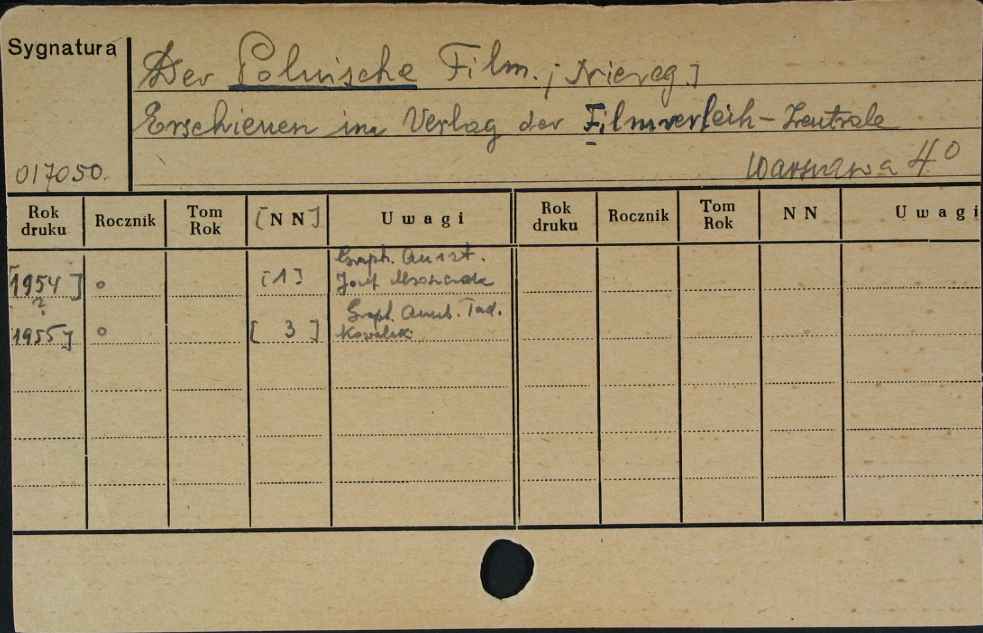 Sygnatura
Der Polnische Film. [Niereg.]
Erschienen im Verlag der Filmverleih-Zentrale
017050.
Warszawa 4°
Rok druku Rocznik Tom Rok [NN] Uwagi Rok druku Rocznik Tom Rok NN Uwagi
Graph. Ausst.
[1954] o [1] Josef
?
Graph. Tad.
1955] o [3]